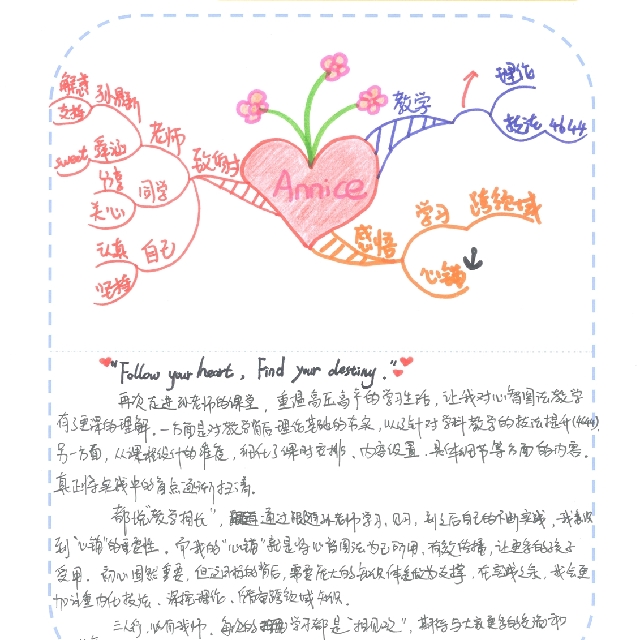 理论
教学
技法 4644
解惑
支持
老师
舜涵
sweet
分享
同学
关心
认真
自己
坚持
Annice
学习
跨领域
感悟
心锚
"Follow your heart, Find your destiny."
再次走进孙老师的课堂，重温高压高产的学习生活，让我对心智图法教学
有了更深的理解。一方面是对教学背后理论基础的夯实，以及针对学科教学的技法提升(4644)
另一方面，从课程设计的维度，细化了课时安排、内容设置、具体细节等方面的内容。
真正将实践中的盲点逐渐扫清。
都说"教学相长"，通过跟随孙老师学习，见习，到之后自己的不断实践，我意识
到"心锚"的重要性。而我的"心锚"就是将心智图法为己所用，有效传播，让更多的孩子
受用。初心固然重要，但在这背后，需要庞大的知识体系做为支撑，在实践之余，我会更
加注重内化技法，深挖理论，储备跨领域知识。
三人行，必有我师。每次的学习都是"相见欢"，期待与大家更多的